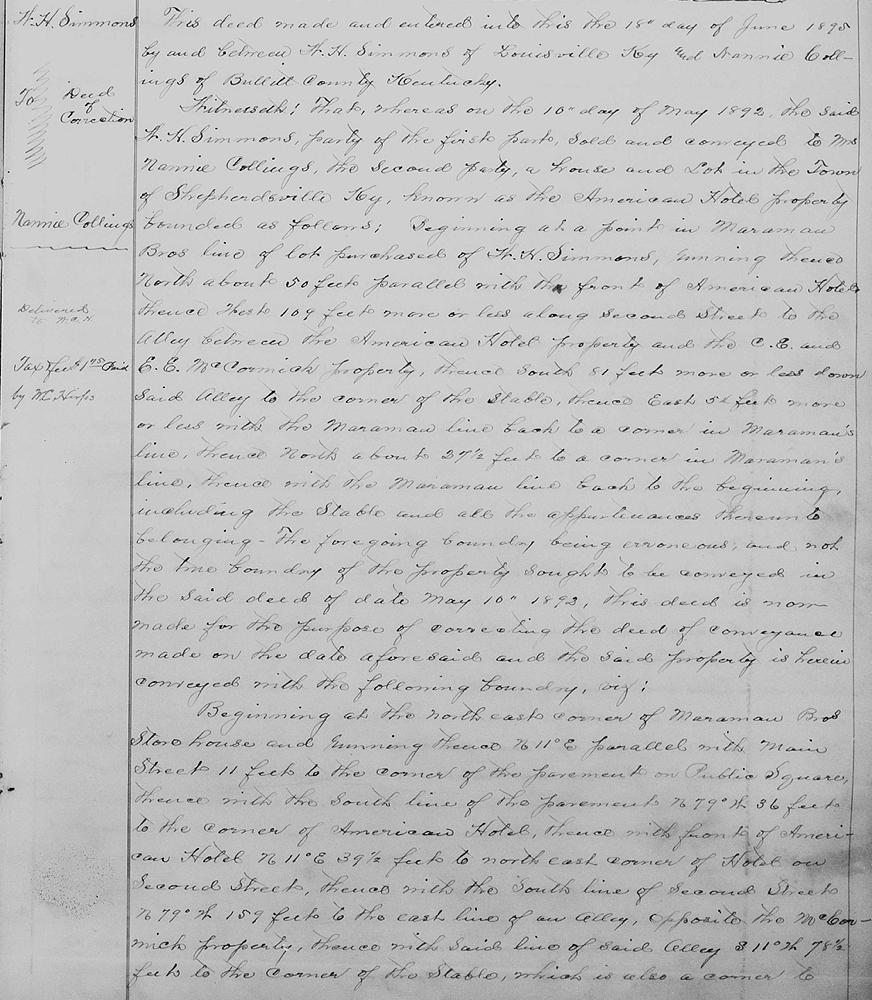 W. H. Simmons
To Deed
of
Correction
Nannie Collings
Delivered
to W.C.H.
Tax & fee $1.75 Paid
by
This deed made and entered into this the 18" day of June 1895
by and between W. H. Simmons of Louisville Ky and Nannie Coll-
ings of Bullitt County Kentucky.
Witnesseth: That, whereas on the 10" day of May 1892, the said
W. H. Simmons, party of the first part, sold and conveyed to Mrs
Nannie Collings, the second party, a house and Lot in the Town
of Shepherdsville Ky, known as the American Hotel property
bounded as follows; Beginning at a point in Maraman
Bros line of lot purchased of W. H. Simmons, running thence
North about 50 feet parallel with the front of American Hotel
thence West 109 feet more or less along Second Street to the
Alley between the American Hotel property and the C. E. and
E. E. McCormick property, thence South 81 feet more or less down
said Alley to the corner of the stable, thence East 54 feet more
or less with the Maraman line back to a corner in Maraman's
line, thence North about 27½ feet to a corner in Maraman's
line, thence with the Maraman line back to the beginning,
including the Stable and all the appurtinances thereunto
belonging - The foregoing boundry being erroneous, and not
the true boundry of the property sought to be conveyed in
the said deed of date May 10" 1892, this deed is now
made for the purpose of correcting the deed of conveyance
made on the date aforesaid and the said property is herein
conveyed with the following boundry, viz:
Beginning at the north east corner of Maraman Bros
Store house and running thence N 11° E parallel with Main
Street 11 feet to the corner of the pavement on Public Square,
thence with the South line of the pavement N 79° W 36 feet
to the corner of American Hotel, thence with front of Ameri-
can Hotel N 11° E 39½ feet to north east corner of Hotel on
Second Street, thence with the South line of Second Street
N 79° W 159 feet to the east line of an Alley, opposite the McCor-
mick property, thence with said line of said Alley S 11° W 78½
feet to the corner of the Stable, which is also a corner to